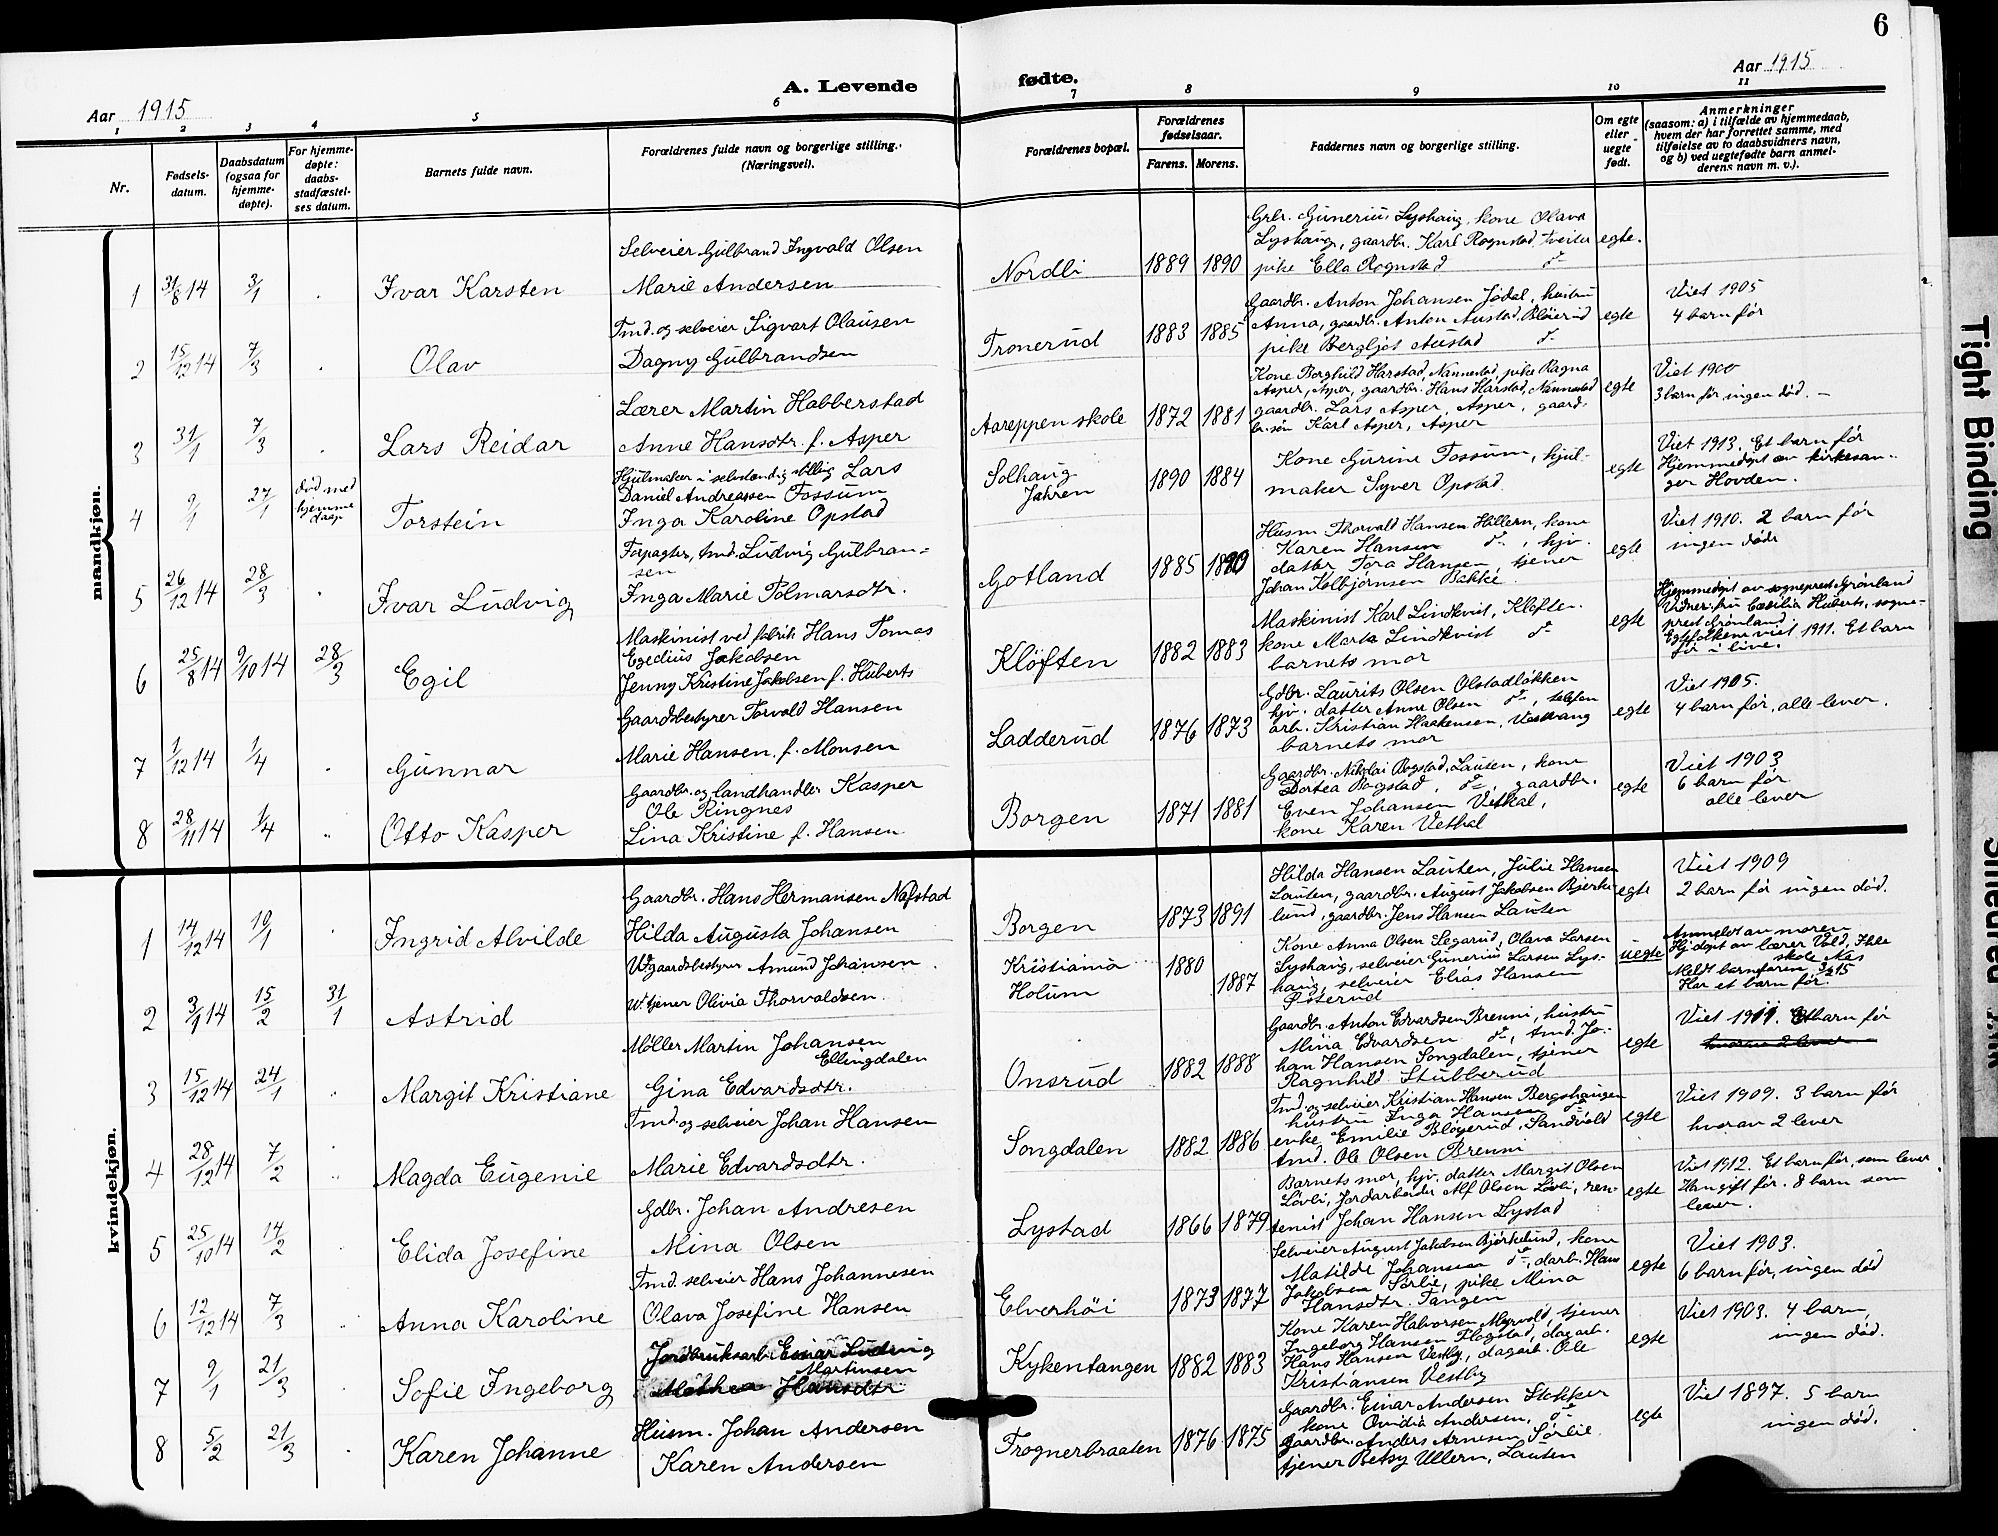 6
A. Levende
fødte.
Aar 1915
Aar 1915
1 2 3 4 5 6 7 8 9 10 11
Nr.
Fødsels-
datum.
Daabsdatum
(ogsaa for
hjemme-
døpte).
For hjemme-
døpte:
daabs-
stadfæstel-
ses datum.
Barnets fulde navn.
Forældrenes fulde navn og borgerlige stilling.
(Næringsvei).
Forældrenes bopæl.
Forældrenes
fødselsaar.
Farens. Morens.
Faddernes navn og borgerlige stilling.
Om egte
eller
uegte
født.
Anmerkninger
(saasom: a) i tilfælde av hjemmedaab,
hvem der har forrettet samme, med
tilføielse av to daabsvidners navn,
og b) ved uegtefødte barn anmel-
derens navn m. v.).
mandkjøn.
1 31/8 14 3/1 Ivar Karsten
Selveier Gulbrand Ingvald Olsen
Marie Andersen
Nordli 1889 1890
Grbr. Gunerius Lyshaug, kone Olava
Lyshaug, gaardbr. Karl Rognstad, Tveiter
pike Ella Rognstad do
egte.
2 15/12 14 7/3 Olav
Tmd. og selveier Sigvart Olausen
Dagny Gulbrandsen
Tronerud 1883 1885
Gaardbr. Anton Johansen Jødal, hustru
Anna, gaardbr. Anton Austad, Bløierud
pike Bergljot Austad do
egte
Viet 1905
4 barn før
3 31/1 7/3 Lars Reidar
Lærer Martin Habberstad
Anne Hansdtr. f. Asper
Aareppen skole 1872 1881
Kone Borghild Harstad, Nannestad, pike Ragna
Asper, Asper, gaardbr. Hans Harstad, Nannestad
gaardbr. Lars Asper, Asper, gaard-
br.søn Karl Asper, Asper
egte
Viet 1900
3 barn før ingen død. -
4 9/1 27/1 død med
hjemme
daap
Torstein
Hjulmaker i selvstændig stilling Lars
Daniel Andreassen Fossum
Inga Karoline Opstad
Solhaug
Jahren
1890 1884
Kone Gurine Fossum, hjul-
maker Syver Opstad.
egte
Viet 1913. Et barn før
Hjemmedøpt av kirkesan-
ger Hovden.
5 26/12 14 28/3 Ivar Ludvig
Forpagter, tmd. Ludvig Gulbran-
sen
Inga Marie Tolmarsdtr.
Gotland 1885 1890
Husm. Thorvald Hansen Hillern, kone
Karen Hansen do, hjv.
datter Tora Hansen, tjener
Johan Kolbjørnsen Bakke
egte
Viet 1910. 2 barn før
ingen døde
6 25/8 14 9/10 14 28/3 Egil
Maskinist ved fabrik Hans Tomas
Egedius Jakobsen
Jenny Kristine Jakobsen f. Huberts
Kløften 1882 1883
Maskinist Karl Lindkvist, Kløften.
kone Marta Lindkvist do
barnets mor
egte
Hjemmedøpt av sogneprest Grønland
Vidner: fru Cæsilia Huberts, sogne-
prest Grønland
Egtefolkene viet 1911. Et barn
før i live.
7 1/12 14 1/4 Gunnar
Gaardsbestyrer Torvald Hansen
Marie Hansen f. Monsen
Ladderud 1876 1873
Gdbr. Laurits Olsen Olstadløkken
hjv. datter Anne Olsen do,
arb. Kristian Haakensen, Vestvang
barnets mor
egte
Viet 1905.
4 barn før, alle lever.
8 28/11 14 1/4 Otto Kasper
Gaardbr. og landhandler Kasper
Ole Ringnes
Lina Kristine f. Hansen
Borgen 1871 1881
Gaardbr. Nikolai Bogstad, Lauten, kone
Dortea Bogstad, do, gaardbr.
Even Johansen Vethal,
kone Karen Vethal
egte
Viet 1903
6 barn før
alle lever
kvindekjøn.
1 14/12 14 10/1 Ingrid Alvilde
Gaardbr. Hans Hermansen Nafstad
Hilda Augusta Johansen
Borgen 1873 1891
Hilda Hansen Lauten, Julie Hansen
Lauten, gaardbr. August Jakobsen Bjerke-
lund, gaardbr. Jens Hansen Lauten
egte
Viet 1909
2 barn før ingen død.
2 3/1 14 15/2 31/1 Astrid
U. gaardsbestyrer Amund Johansen
U. tjener Olivia Thorvaldsen
Kristiania
Holum
1880 1887
Kone Anna Olsen Segarud, Olava Larsen
Lyshaug, selveier Gunerius Larsen Lys-
haug, selveier Elias Hansen
Østerud
uegte
Anmeldt av moren
Hj. døpt av lærer Vold,
skole Næs
Meldt barnefaren 3/2 15
Har et barn før.
3 15/12 14 24/1 Margit Kristiane
Møller Martin Johansen
Ellingdalen
Gina Edvardsdtr.
Onsrud 1882 1888
Gaardbr. Anton Edvardsen Brenni, hustru
Mina Edvardsen do, tmd. Jo-
han Hansen Songdalen, tjener
Ragnhild Stubberud
egte
Viet 1911. Et barn før
hvorav 2 lever
4 28/12 14 7/2 Magda Eugenie
Tmd. og selveier Johan Hansen
Marie Edvardsdtr.
Songdalen 1882 1886
Tmd. og selveier Kristian Hansen Bergshaugen
hustru Inga Hansen do
enke Emilie Bløyerud, Sandvold
tmd. Ole Olsen Brenni
egte
Viet 1909. 3 barn før
hvorav 2 lever
5 25/10 14 14/2 Elida Josefine
Gdbr. Johan Andresen
Mina Olsen
Lystad 1866 1879
Barnets mor, hjv. datter Margit Olsen
Løvli, Jordarbeider Alf Olsen Løvli, ren-
tenist Johan Hansen Lystad
egte
Viet 1912. Et barn før, som lever
Han gift før. 8 barn som
lever.
6 12/12 14 7/3 Anna Karoline
Tmd. selveier Hans Johannesen
Olava Josefine Hansen
Elverhöi 1873 1877
Selveier August Jakobsen Bjørkelund, kone
Matilde Johansen do, darb. Hans
Jakobsen Sørlie, pike Mina
Hansdtr. Tangen
egte
Viet 1903.
6 barn før, ingen død
7 9/1 21/3 Sofie Ingeborg
Jordbruksarb. Einar Ludvig
Martinsen
Mathea Hansdtr
Kykentangen 1882 1883
Kone Karen Halvorsen Myrvold, tjener
Ingeborg Hansen Flogstad, dagarb.
Hans Hansen Vestby, dagarb. Ole
Kristiansen Vestby
egte
Viet 1903. 4 barn,
ingen død.
8 5/2 21/3 Karen Johanne
Husm. Johan Andersen
Karen Andersen
Trognerbraaten 1876 1875
Gaardbr. Einar Andersen Stokker
kone Ovidia Andersen, do
gaardbr. Anders Arnesen Sørlie
tjener Betsy Ullern, Lauten
egte
Viet 1897. 5 barn
ingen død.
Tight Binding